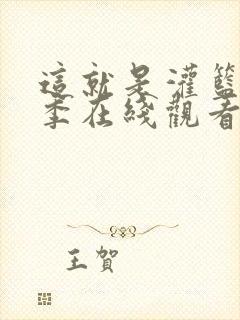 這就是灌籃
季在綫觀看
王賀